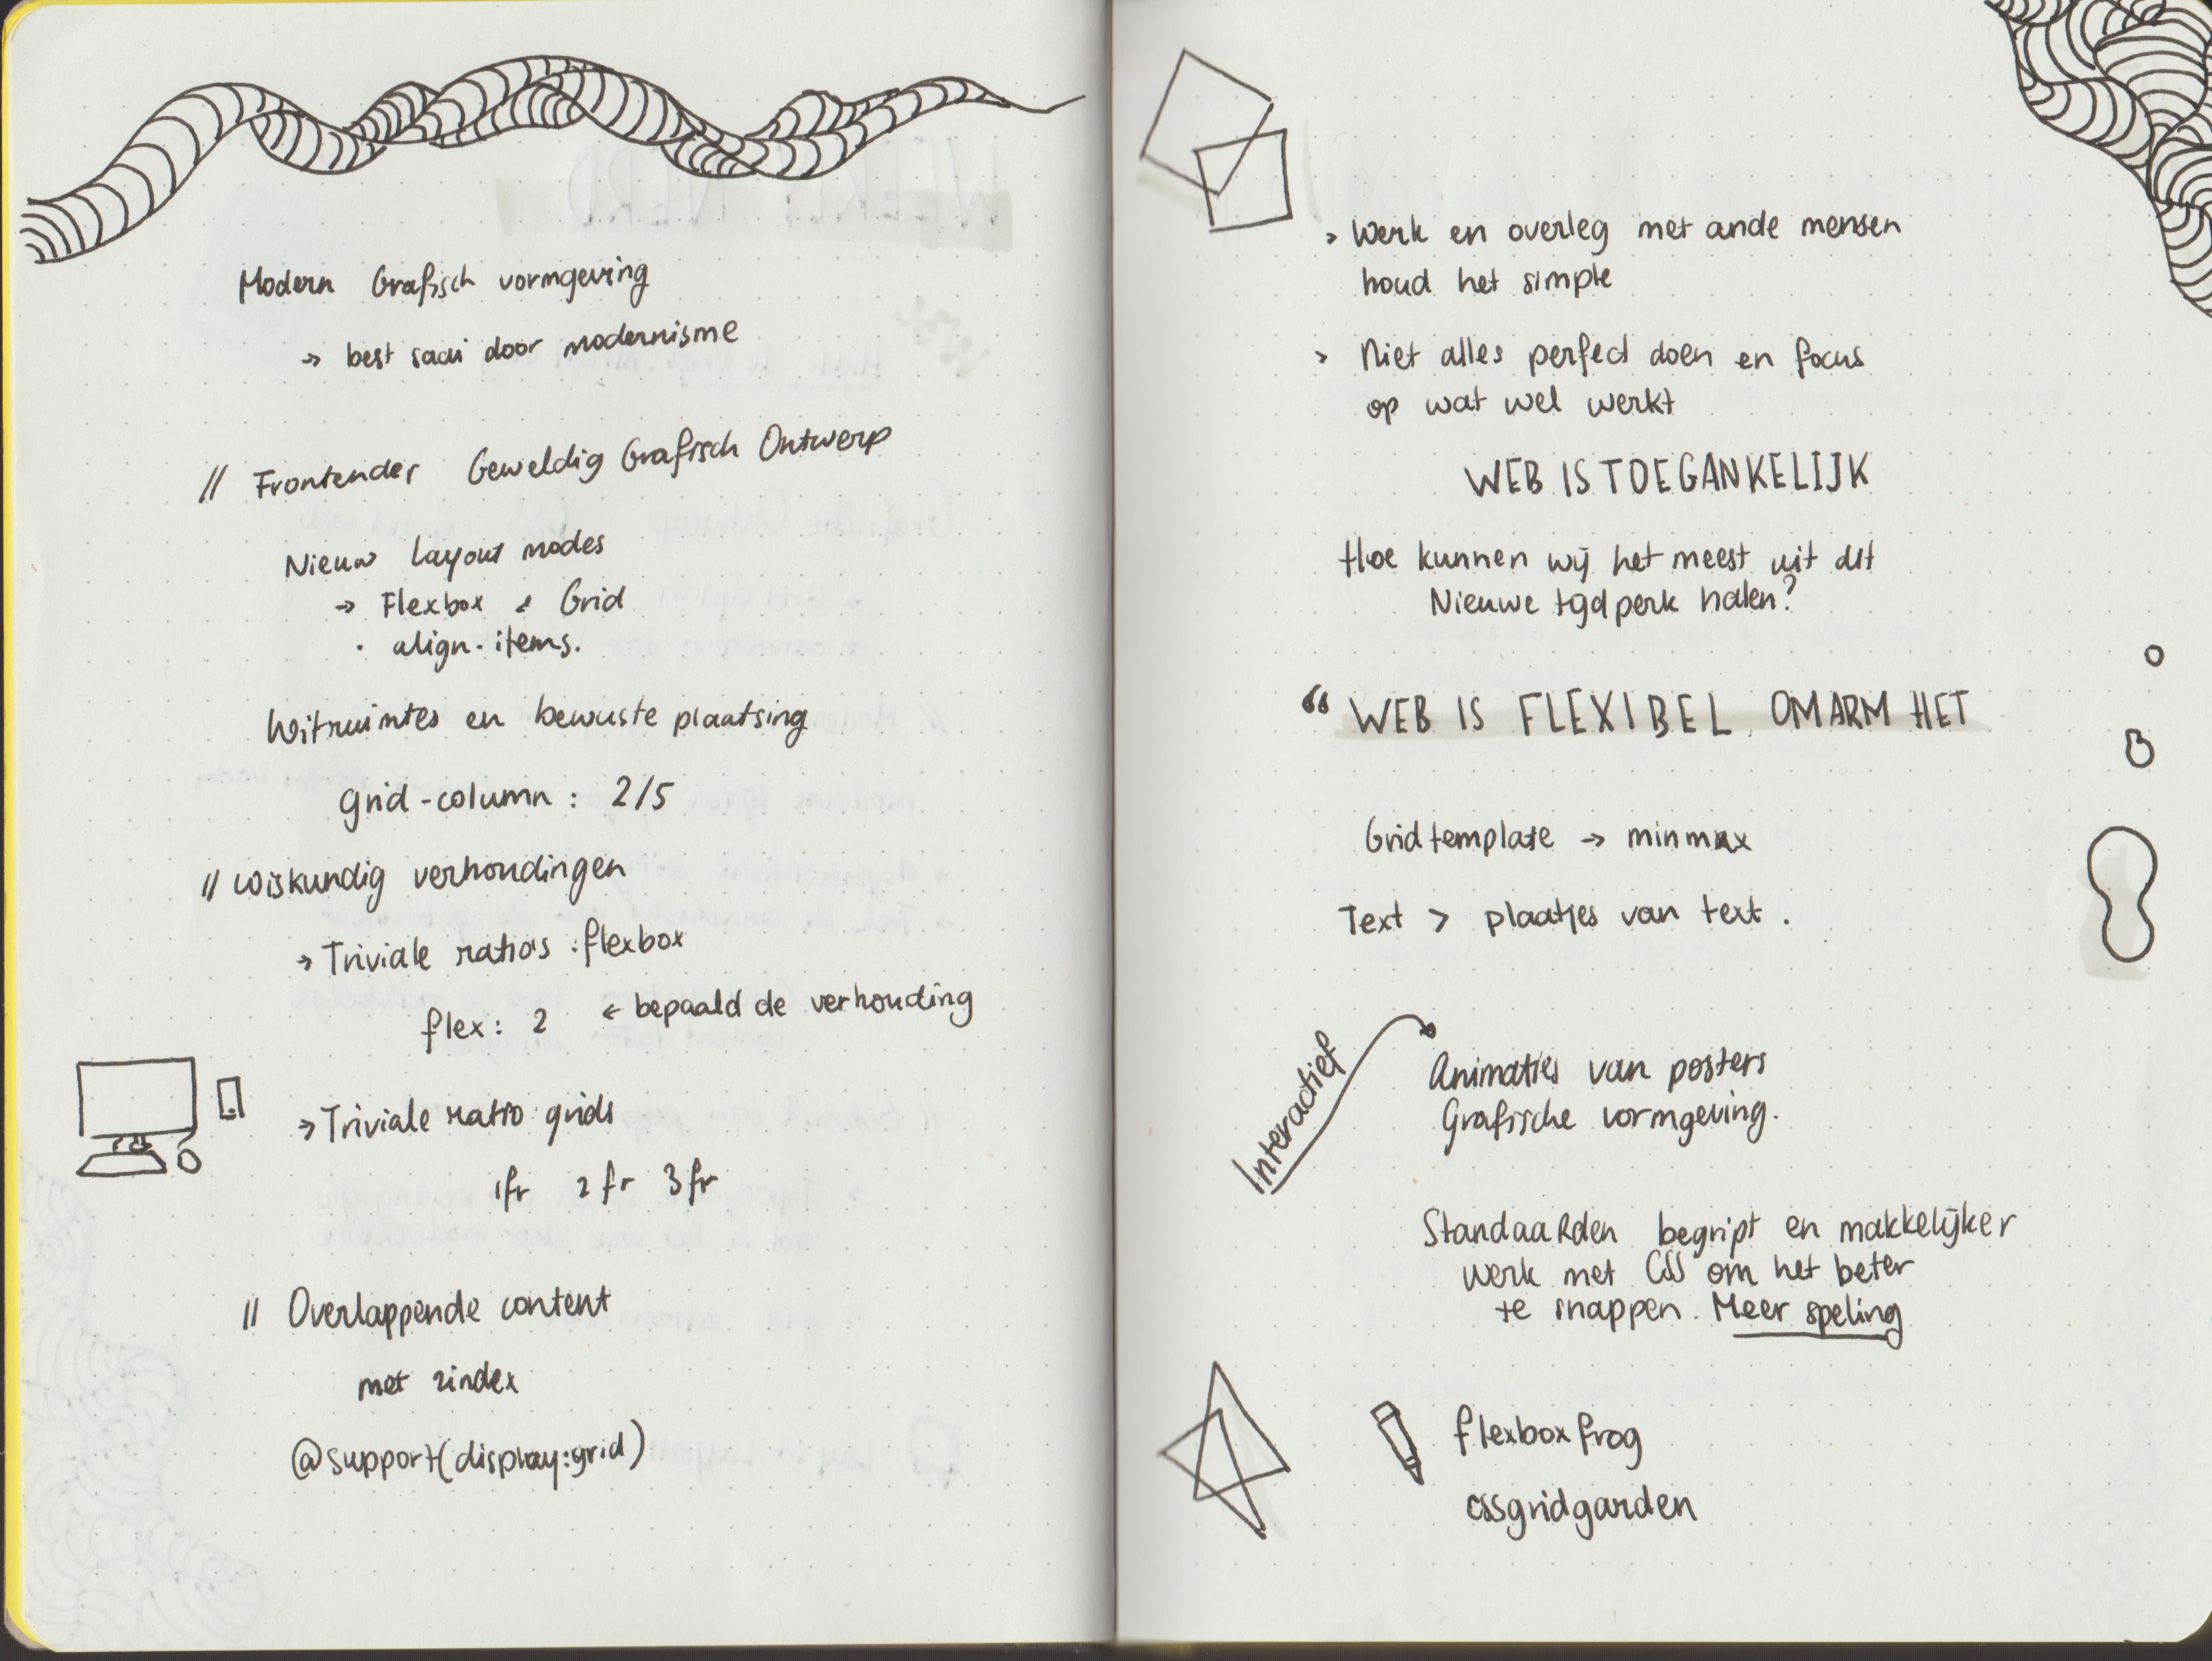 Modern Grafisch vormgeving
→ best saai door modernisme
// Frontender Geweldig Grafisch Ontwerp
Nieuw layout modes
→ Flexbox & Grid
· align-items.
Witruimtes en bewuste plaatsing
grid-column: 2/5
// Wiskundig verhoudingen
→ Triviale ratio's : flexbox
flex: 2 ← bepaald de verhouding
→ Triviale ratio grids
1fr 2fr 3fr
// Overlappende content
met zindex
@support(display:grid)
> Werk en overleg met ande mensen
houd het simple
> Niet alles perfect doen en focus
op wat wel werkt
WEB IS TOEGANKELIJK
Hoe kunnen wij het meest uit dit
Nieuwe tijdperk halen?
“ WEB IS FLEXIBEL OMARM HET
Grid template → minmax
Text > plaatjes van text.
Interactief
Animaties van posters
Grafische vormgeving.
Standaarden begript en makkelijker
werk met CSS om het beter
te snappen. Meer speling
flexbox frog
cssgridgarden